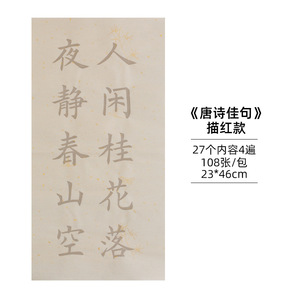 人闲桂花落
夜静春山空
《唐诗佳句》
描红款
27个内容4遍
108张/包
23*46cm